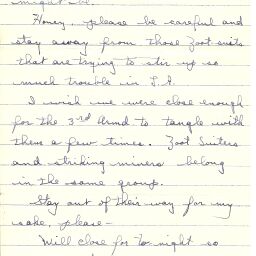 might be.
Honey, please be careful and
stay away from those Zoot suits
that are trying to stir up so
much trouble in L.A.
I wish we were close enough
for the 3rd Armd to tangle with
them a few times. Zoot Suiters
and striking miners belong
in the same group.
Stay out of their way for my
sake, please—
Will close for to-night so